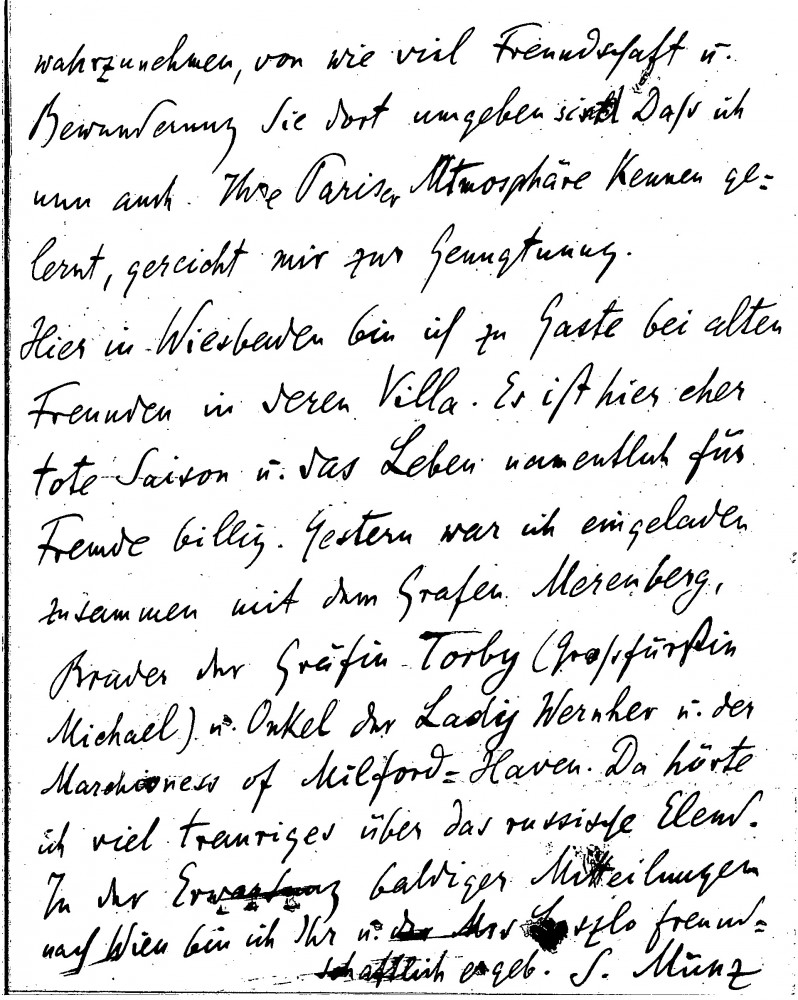 wahrzunehmen, von wie viel Freundschaft u.
Bewunderung Sie dort umgeben sind Daſs ich
nun auch Ihre Pariser Atmosphäre kennen ge=
lernt, gereicht mir zur Genugtuung.
Hier in Wiesbaden bin ich zu Gaste bei alten
Freunden in deren Villa. Es ist hier eher
tote Saison u. das Leben namentlich für
Fremde billig. Gestern war ich eingeladen
zusammen mit dem Grafen Merenberg,
Bruder der Gräfin Torby (Groſsfürstin
Michael) u. Onkel der Lady Wernher u. der
Marchioness of Milford=Haven. Da hörte
ich viel trauriges über das russische Elend.
In der Erwartung baldiger Mitteilungen
nach Wien bin ich Ihr u. der Mrs Laszlo freund=
schaftlich ergeb. S. Münz